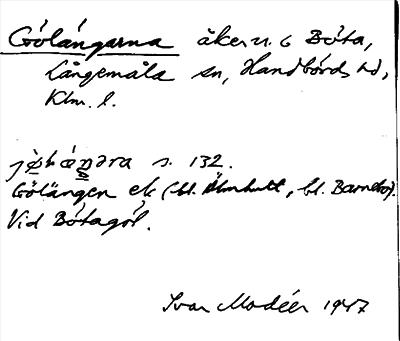 Gölängarna åker n. 6 Bóta,
Långemåla sn, Handbörds hd,
Klm. l.
s. 132.
Gölängen ek (bl. Älmhult, bl. Barnebo).
Vid Bótagöl.
Ivar Modéer 1947